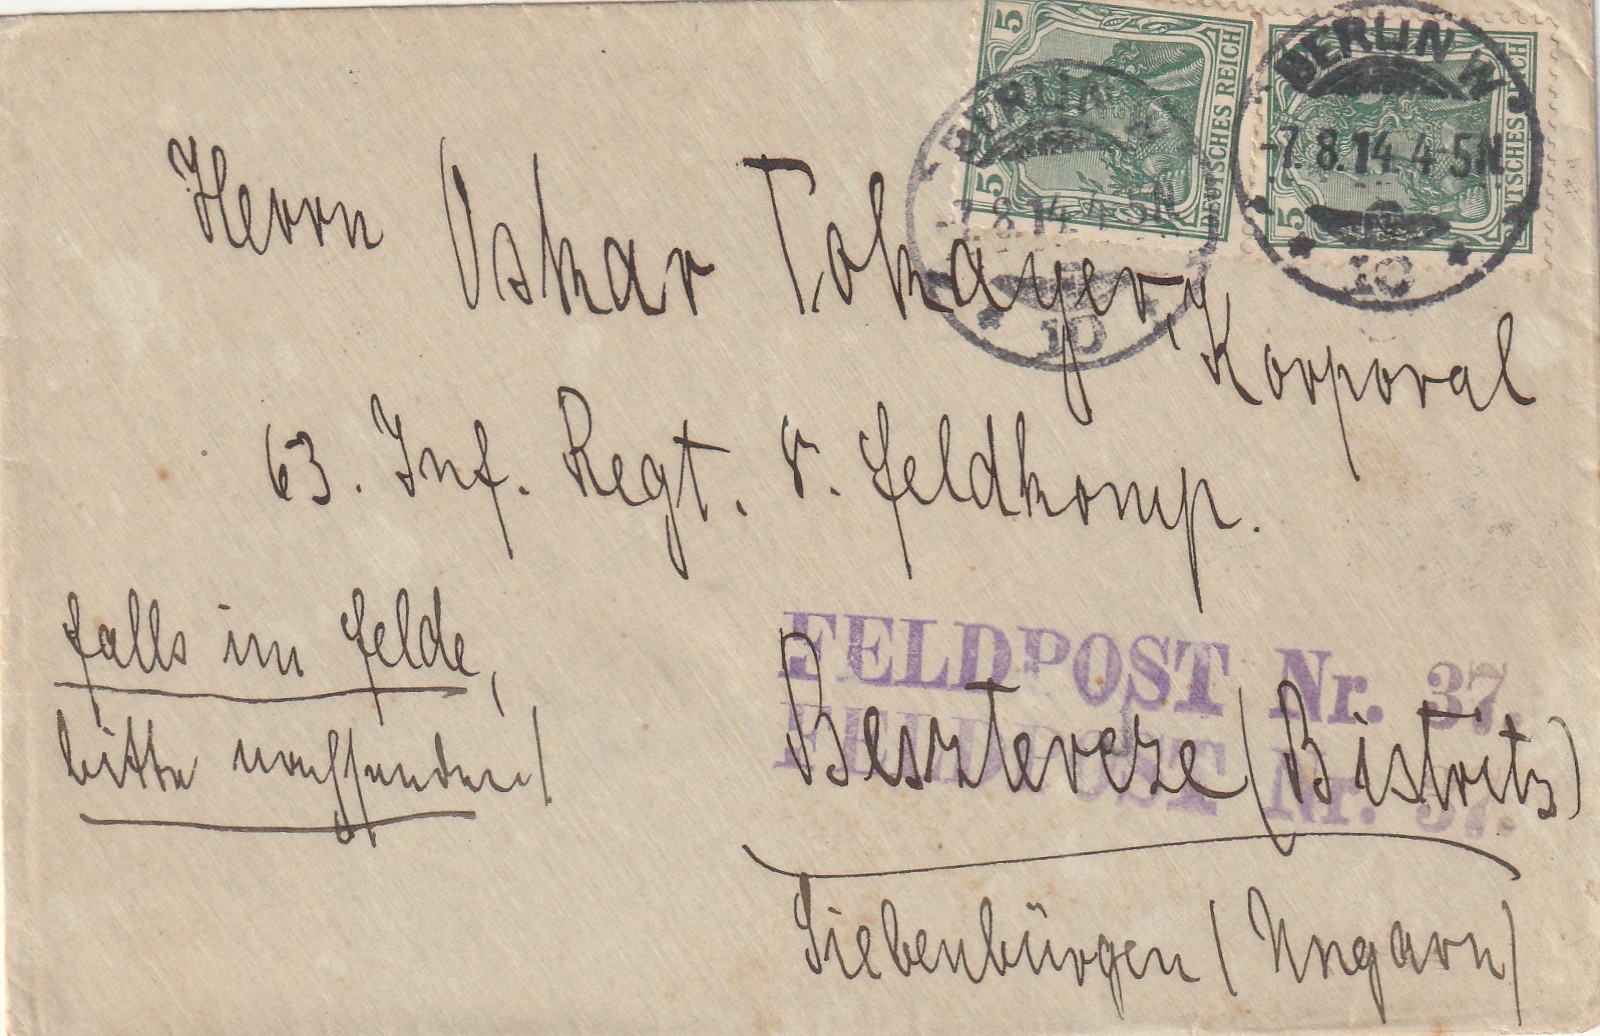 5 5 DEUTSCHES REICH
5 TSCHES REICH
BERLIN
-7.8.14.4-5N
* 10 *
BERLIN W
-7.8.14.4-5N
* 10 *
Herrn Oskar Tokayer, Korporal
63. Inf. Regt. 8. Feldkomp.
falls im Felde,
bitte nachsenden!
FELDPOST Nr. 37.
FELDPOST Nr. 37.
Besztercze (Bistritz)
Siebenbürgen (Ungarn)